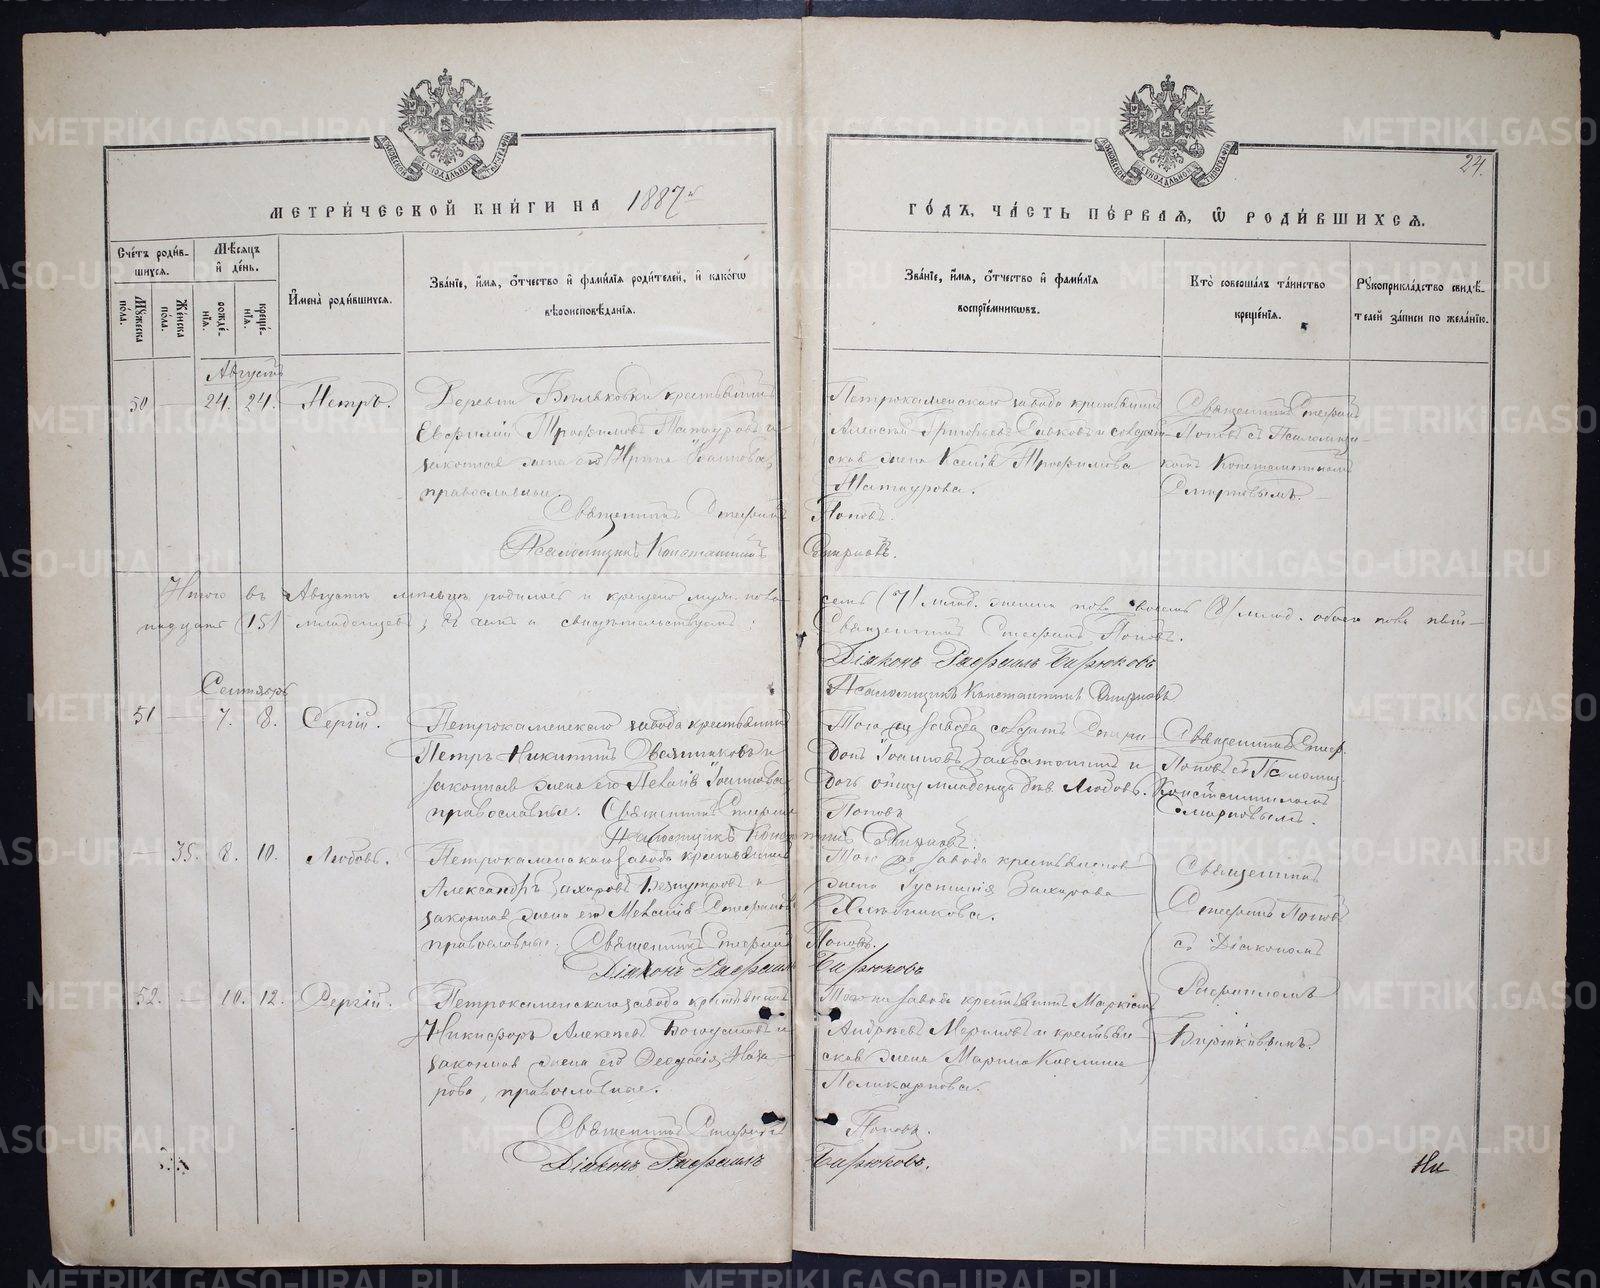 24.
МЕТРИ́ЧЕСКОЙ КНИ́ГИ НА 1887й
ГО́ДЪ, ЧА́СТЬ ПЕ́РВАЯ, Ѡ РОДИ́ВШИХСЯ.
Сче́тъ роди́в-
шихся.
Му́жеска по́ла.
Же́нска по́ла.
Мѣ́сяцъ
и҆ де́нь.
рожде́нїя.
креще́нїя.
И҆мена̀ роди́вшихся.
Зва́нїе, и҆́мя, ѻ҆́тчество и҆ фами́лїя роди́телей, и҆ како́гѡ
вѣроисповѣ́данїя.
Зва́нїе, и҆́мя, ѻ҆́тчество и҆ фами́лїя
воспрїе́мникѡвъ.
Кто̀ соверша́лъ та́инство
креще́нїя.
Рꙋкоприкла́дство свидѣ́-
телей за́писи по жела́нїю.
Августъ
50 — 24. 24. Петръ.
Деревни крестьянинъ
Евфимій Трофимовъ Татауровъ и
законная жена его Ирина Іоаннова,
православные.
Священникъ Стефанъ Попов.
Псаломщикъ Константинъ Смирновъ.
Петрокаменскаго завода крестьянинъ
Алексѣй Григорьевъ и солдат-
ская жена Ксенія Трофимова
Татаурова.
Священникъ Стефанъ
Поповъ съ Псаломщи-
комъ Константиномъ
Смирновымъ.
Итого въ Августѣ мѣсяцѣ родилось и крещено муж. пола
семь (7) млад. женска пола восемь (8) млад. обоего пола пят-
надцать (15) младенцевъ; въ чемъ и свидѣтельствуемъ:
Священникъ Стефанъ Поповъ.
Діаконъ Рафаилъ Бирюковъ
Псаломщикъ Константинъ Смирновъ
Сентябрь
51 — 7. 8. Сергій.
Петрокаменскаго завода крестьянинъ
Петръ Никитинъ Овсянниковъ и
законная жена его Пелагія Іоаннова
православные. Священникъ Стефанъ Поповъ
Псаломщикъ Константинъ Смирновъ.
Того же завода солдатъ Спири-
донъ Іоанновъ и
дочь отцу младенца дѣв. Любовь.
Священникъ Стеф.
Поповъ съ Псаломщ.
Константиномъ
Смирновымъ.
— 35. 8. 10. Любовь.
Петрокаменскаго завода крестьянинъ
Александръ Захаровъ и
законная жена его Меланія Стефанова
православные. Священникъ Стефанъ Поповъ.
Діаконъ Рафаилъ Бирюковъ
Того же завода крестьянская
жена Іустинія Захарова
Хлѣбникова.
Священникъ
Стефанъ Поповъ
съ Діакономъ
Рафаиломъ
Бирюковымъ.
52. — 10. 12. Сергій.
Петрокаменскаго завода крестьянинъ
Никифоръ Алексѣевъ и
законная жена его Феодосія Наза-
рова, православные.
Священникъ Стефанъ Поповъ.
Діаконъ Рафаилъ Бирюковъ.
Того же завода крестьянинъ
Андреевъ и крестьян-
ская жена Марина
Поликарпова.